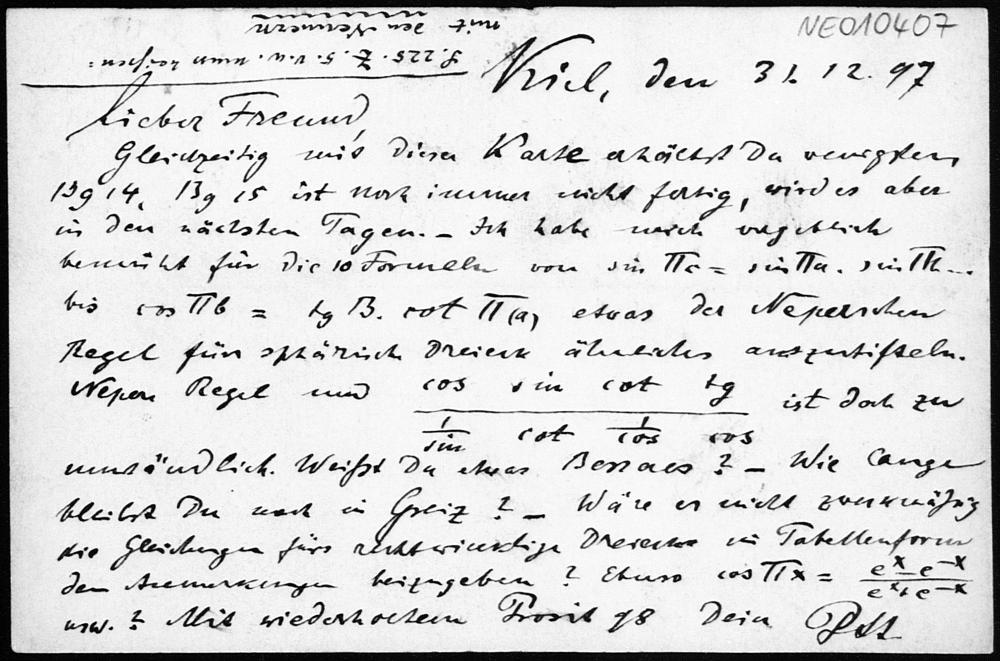 NE010407
S. 225. Z. 5. v. u. muss heissen:
mit den Nennern
Kiel, den 31. 12. 97
Lieber Freund,
Gleichzeitig mit dieser Karte erhältst Du
Bg 14, Bg 15 ist noch immer nicht fertig, wird es aber
in den nächsten Tagen. – Ich habe mich vergeblich
bemüht für die 10 Formeln von sin Πc = sin Πa . sin Πb ...
bis cos Πb = tg B. cot Π(a) etwas der Neperschen
Regel fürs sphärisch Dreieck ähnliches auszutifteln.
Nepers Regel und cos sin cot tg / 1/sin cot 1/cos cos ist doch zu
umständlich. Weißt Du etwas Besseres? – Wie lange
bleibst Du noch in Greiz? – Wäre es nicht zweckmäßig
die Gleichungen fürs rechtwinklige Dreieck in Tabellenform
den Anmerkungen beizugeben? Ebenso cos Πx = e^x e^-x / e^x + e^-x
usw.? Mit wiederholtem Prosit 98 Dein